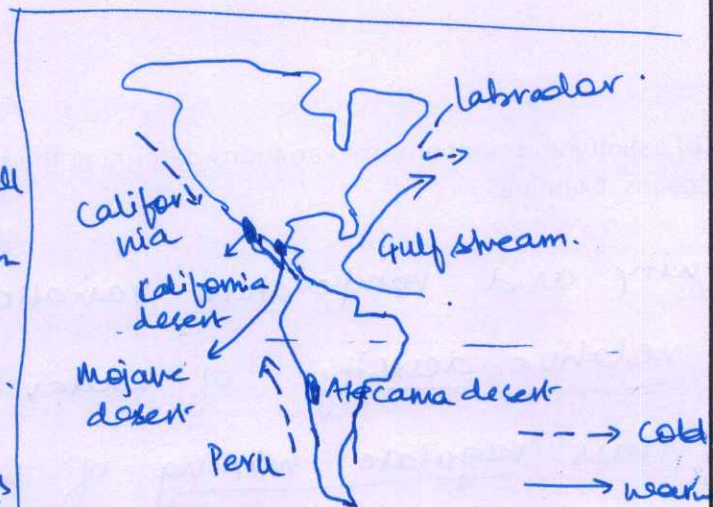 labrador.
Califor
nia
Gulf stream.
California
desert
Mojave
desert
Atacama desert
Peru
cold
warm